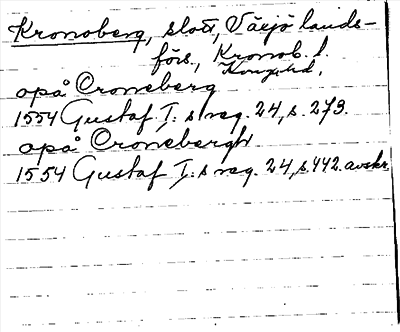 Kronoberg, slott, Växjö lands-
förs., Kronob. l.
Kungshd,
opå Croneberg
1554 Gustaf I:s reg. 24, s. 273.
opå Cronebergh
1554 Gustaf I:s reg. 24, s. 442. avskr.